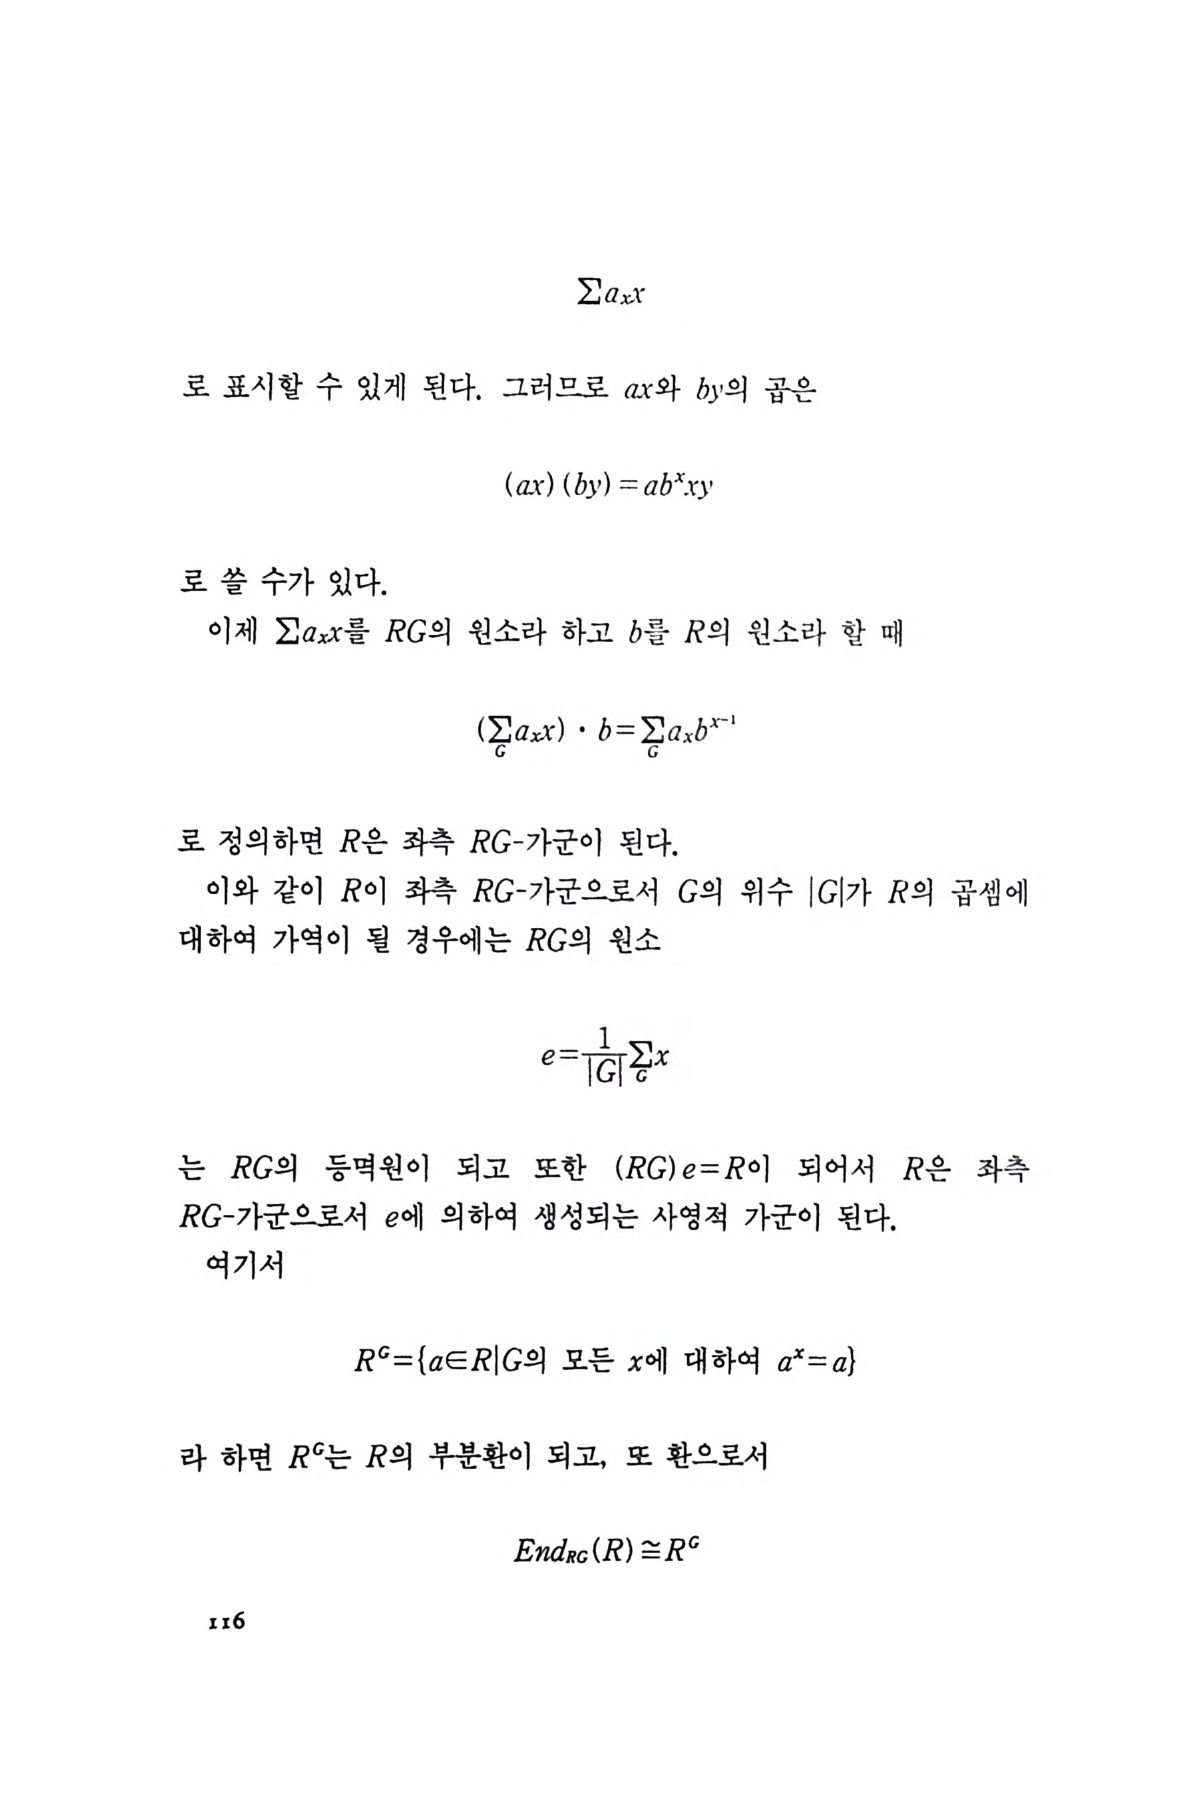 ∑aₓx
로 표시할 수 있게 된다. 그러므로 ax와 by의 곱은
(ax)(by)=abˣxy
로 쓸 수가 있다.
이제 ∑aₓx를 RG의 원소라 하고 b를 R의 원소라 할 때
(∑_G aₓx)·b=∑_G aₓb^{x⁻¹}
로 정의하면 R은 좌측 RG-가군이 된다.
이와 같이 R이 좌측 RG-가군으로서 G의 위수 |G|가 R의 곱셈에
대하여 가역이 될 경우에는 RG의 원소
e=\frac{1}{|G|}∑_G x
는 RG의 등멱원이 되고 또한 (RG)e=R이 되어서 R은 좌측
RG-가군으로서 e에 의하여 생성되는 사영적 가군이 된다.
여기서
R^G={a∈R|G의 모든 x에 대하여 aˣ=a}
라 하면 R^G는 R의 부분환이 되고, 또 환으로서
End_{RG}(R)≅R^G
116